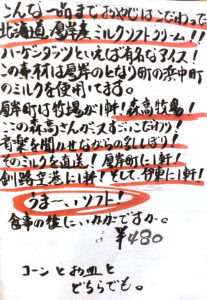 こんな一品までおやじはこだわった
北海道厚岸産ミルクソフトクリーム!!
ハーゲンダッツといえば有名なアイス!
この素材は厚岸のとなり町の浜中町
のミルクを使用してます。
厚岸町は牧場が1軒!森高牧場!
この森高さんがスすごいこだわり!
音楽を聞かせながらの乳しぼり!
そのミルクを直送!厚岸町に1軒!
釧路空港に1軒!そして伊東に1軒!
うまーいソフト!
食事の後にいかがですか。
¥480
コーンとお皿と
どちらでも。